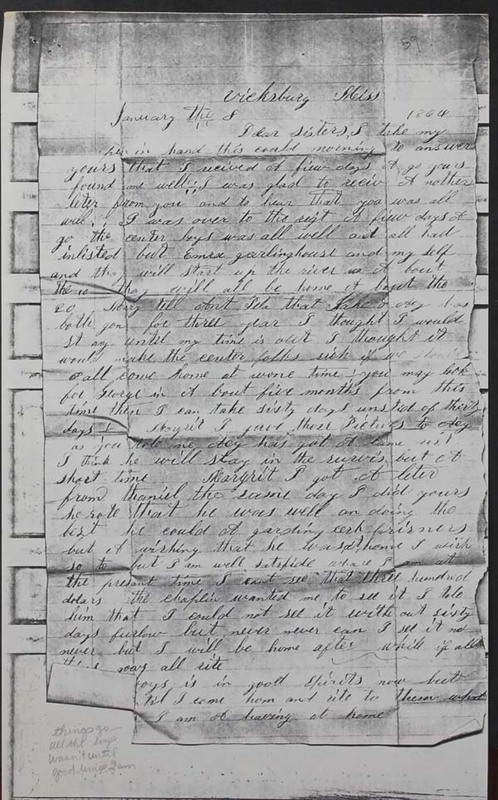 59
Vicksburg Miss
January the 8 1864
Dear Sisters, I take my
pen in hand this could morning to answer
yours that I received A fiew days A go yours
found me well I was glad to receiv A nother
leter from you and to hear that you was all
well. I was over to the regt A fiew days A
go the center boys was all well and all had
inlisted but garlinghouse and my self
and thay will start up the river in A bout
the 10 thay will all be home A bout the
20, tell
both for three year I thought I would
stay until my time is out I thought it
wont make the center folks sick if we
all come home at wone time you may look
for George in A bout five months from this
time then I can take sixty days insted of thirty
days I I gave those Pictures to
as you tole me has got A
I think he will stay in the survis but A
short time Margrit I got A leter
from the same day I did yours
he rote that he was well an doing the
best he could A garding prisners
but A wishing that he was A home I wish
so to but I am well satsfide where I am at
the present time I cant see that three hundred
dolars the chaplin wanted me to see it I tole
him that I could not see it with out sixty
days furlow but never never can I see it no
never but I will be home after while if all
things now all rite
boys is in good spirits now but
til I come hom and rite to them what
I am A having at home
things go
all the boys
wasn't until
good times I am